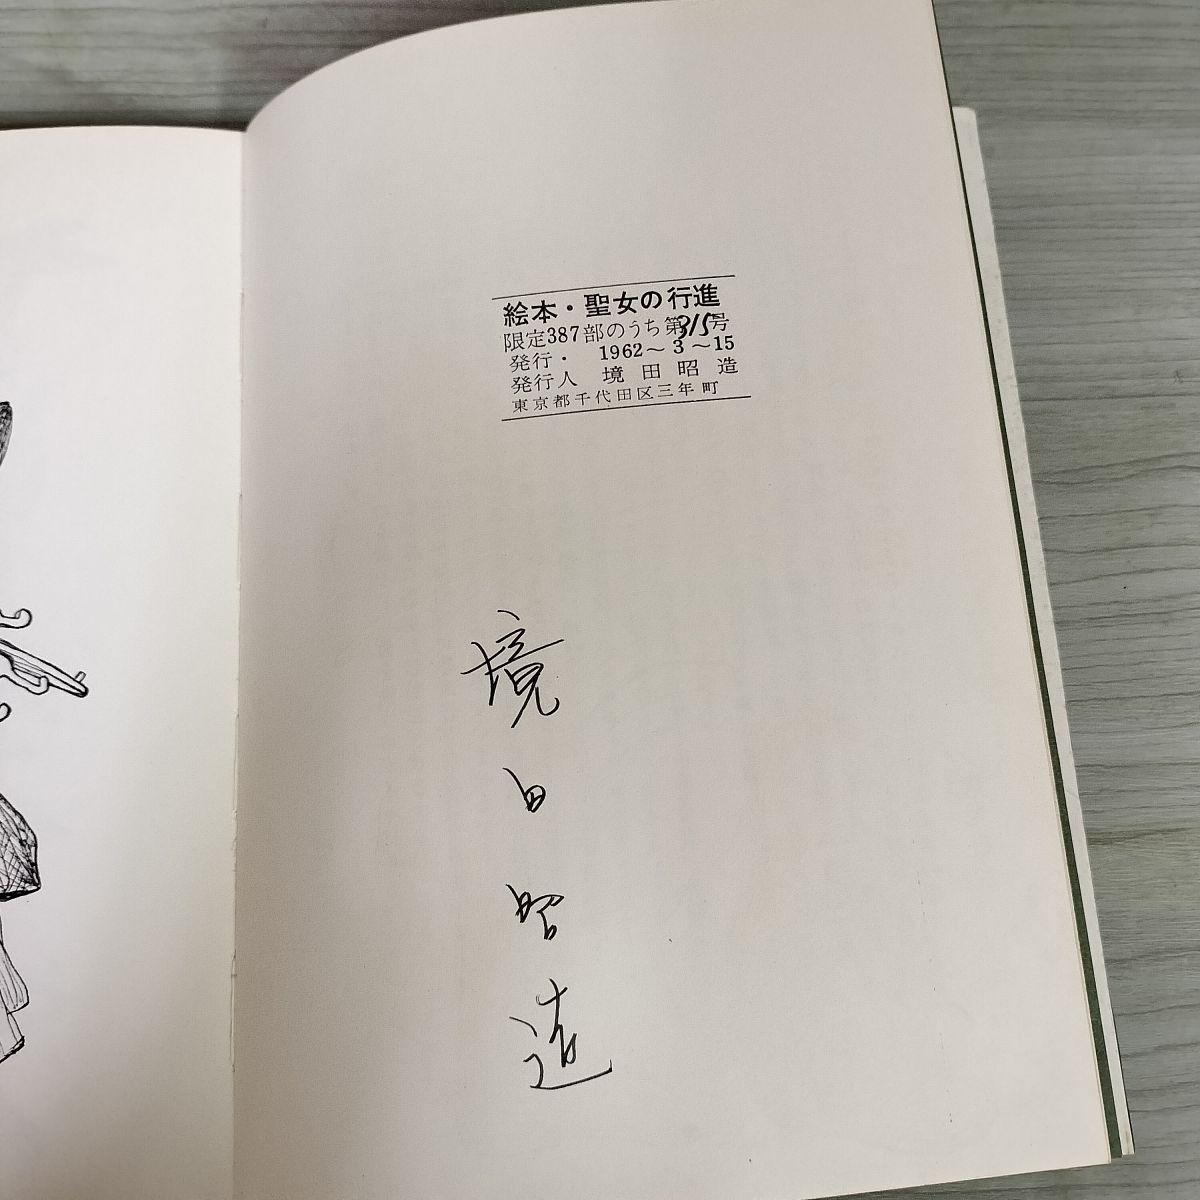 絵本・聖女の行進
限定387部のうち第315号
発行・ 1962～3～15
発行人 境田昭造
東京都千代田区三年町
境田昭造